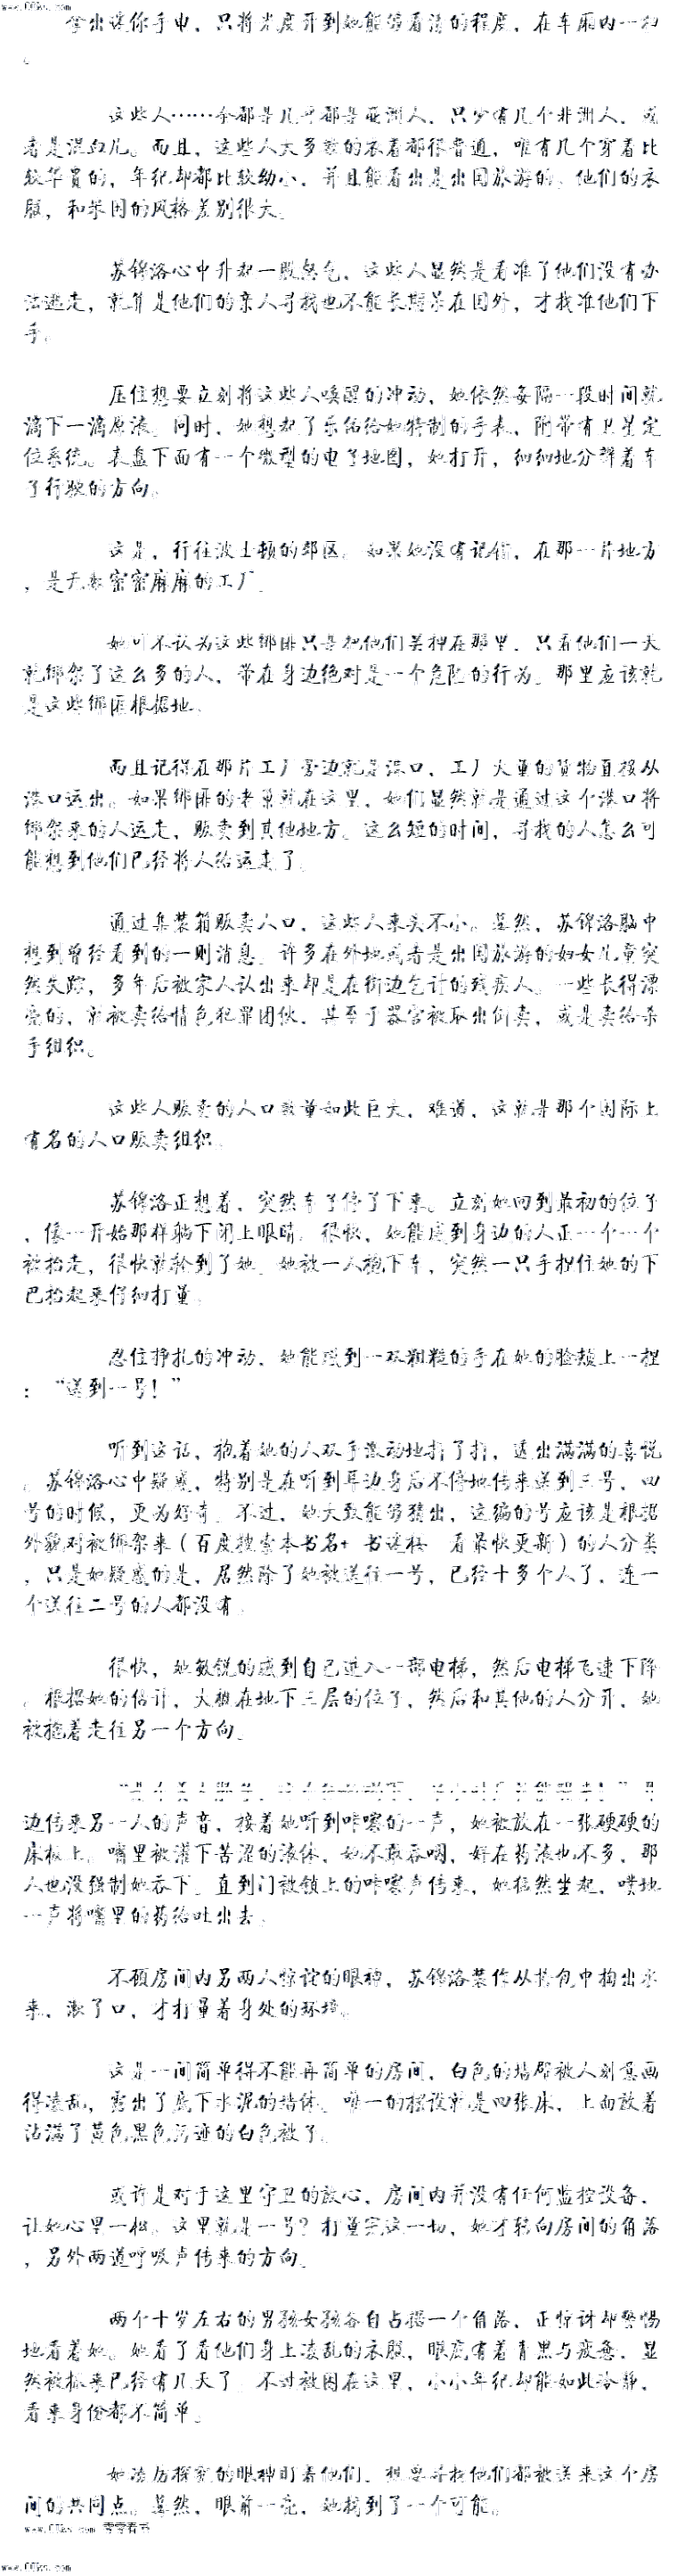 www.00ks.com
拿出迷你手电，只将光度开到她能够看清的程度，在车厢内一扫
。
这些人……全都是几乎都是亚洲人，只少有几个非洲人，或
者是混血儿。而且，这些人大多数的衣着都很普通，唯有几个穿着比
较华贵的，年纪却都比较幼小，并且能看出是出国旅游的，他们的衣
服，和米国的风格差别很大。
苏锦洛心中升起一股怒气，这些人显然是看准了他们没有办
法逃走，就算是他们的亲人寻找也不能长期呆在国外，才找准他们下
手。
压住想要立刻将这些人唤醒的冲动，她依然每隔一段时间就
滴下一滴原液。同时，她想起了乐佑给她特制的手表，附带有卫星定
位系统。表盘下面有一个微型的电子地图，她打开，细细地分辨着车
子行驶的方向。
这是，行往波士顿的郊区。如果她没有记错，在那一片地方
，是无数密密麻麻的工厂。
她可不认为这些绑匪只是把他们关押在那里，只看他们一天
就绑架了这么多的人，带在身边绝对是一个危险的行为。那里应该就
是这些绑匪根据地。
而且记得在那片工厂旁边就是港口，工厂大量的货物直接从
港口运出。如果绑匪的老巢就在这里，她们显然就是通过这个港口将
绑架来的人运走，贩卖到其他地方。这么短的时间，寻找的人怎么可
能想到他们已经将人给运走了。
通过集装箱贩卖人口，这些人来头不小。蓦然，苏锦洛脑中
想到曾经看到的一则消息。许多在外地或者是出国旅游的妇女儿童突
然失踪，多年后被家人认出来却是在街边乞讨的残疾人。一些长得漂
亮的，就被卖给情色犯罪团伙，甚至于器官被取出倒卖，或是卖给杀
手组织。
这些人贩卖的人口数量如此巨大，难道，这就是那个国际上
有名的人口贩卖组织。
苏锦洛正想着，突然车子停了下来。立刻她回到最初的位子
，像一开始那样躺下闭上眼睛。很快，她能感到身边的人正一个一个
被抬走，很快就轮到了她。她被一人抱下车，突然一只手捏住她的下
巴抬起来仔细打量。
忍住挣扎的冲动，她能感到一双粗糙的手在她的脸颊上一捏
：“送到一号！”
听到这话，抱着她的人双手激动地抖了抖，透出满满的喜悦
。苏锦洛心中疑惑，特别是在听到耳边身后不停地传来送到三号，四
号的时候，更为好奇。不过，她大致能够猜出，这编的号应该是根据
外貌对被绑架来（百度搜索本书名+ 书谜楼 看最快更新）的人分类
，只是她疑惑的是，居然除了她被送往一号，已经十多个人了，连一
个送往二号的人都没有。
很快，她敏锐的感到自己进入一部电梯，然后电梯飞速下降
。根据她的估计，大概在地下三层的位子，然后和其他的人分开，她
被抱着走往另一个方向。
边传来另一人的声音，接着她听到咔嚓的一声，她被放在一张硬硬的
床板上。嘴里被灌下苦涩的液体，她不敢吞咽，好在药液也不多，那
人也没强制她吞下。直到门被锁上的咔嚓声传来，她猛然坐起，噗地
一声将嘴里的药给吐出去。
不顾房间内另两人惊诧的眼神，苏锦洛装作从挎包中掏出水
来，漱了口，才打量着身处的环境。
这是一间简单得不能再简单的房间，白色的墙壁被人刻意画
得凌乱，露出了底下水泥的墙体。唯一的摆设就是四张床，上面放着
沾满了黄色黑色污迹的白色被子。
或许是对于这里守卫的放心，房间内并没有任何监控设备，
让她心里一松。这里就是一号？打量完这一切，她才转向房间的角落
，另外两道呼吸声传来的方向。
两个十岁左右的男孩女孩各自占据一个角落，正惊讶却警惕
地看着她。她看了看他们身上凌乱的衣服，眼底有着青黑与疲惫，显
然被抓来已经有几天了。不过被困在这里，小小年纪却能如此冷静，
看来身份都不简单。
她凌厉探究的眼神盯着他们，想要寻找他们都被送来这个房
间的共同点。蓦然，眼前一亮，她找到了一个可能。
www.00ks.com 零零看书
www.00ks.com